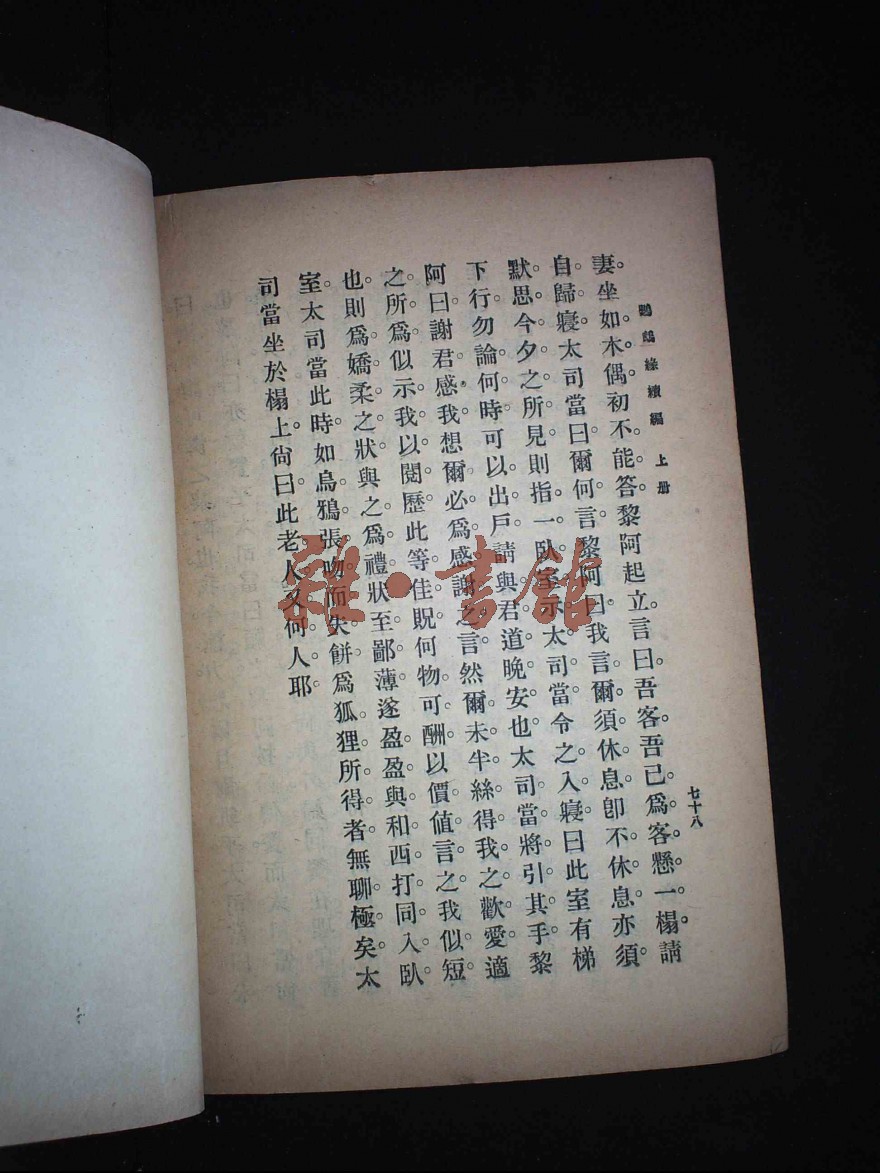 鸚鵡緣續編 上册
七十八
妻坐如木偶。初不能答。黎阿起立。言曰。吾客。吾已爲客懸一榻。請
自歸寢。太司當曰。爾何言。黎阿曰。我言爾須休息。卽不休息。亦須
默思今夕之所見。則指一臥室示太司當。令之入寢。曰。此室有梯
下行。勿論何時。可以出戶。請與君道晚安也。太司當將引其手。黎
阿曰。謝君感我。想爾必爲感謝之言。然爾未半絲得我之歡愛。適
之所爲。似示我以閱歷。此等佳貺。何物可酬。以價值言之。我似短
也。則爲嬌柔之狀。與之爲禮。狀至鄙薄。遂盈盈與和西打同入臥
室。太司當此時如烏鴉張吻而失餅。爲狐狸所得者。無聊極矣。太
司當坐於榻上。尙曰。此老人又何人耶。
雜·書館